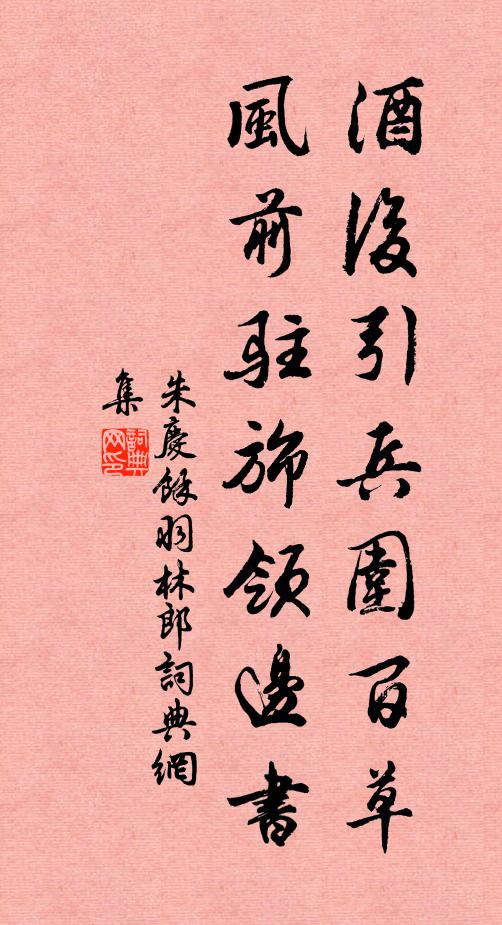 酒後引兵圍百草
風前駐旆領邊書
朱慶餘羽林郎詞典網
集
詞典网印